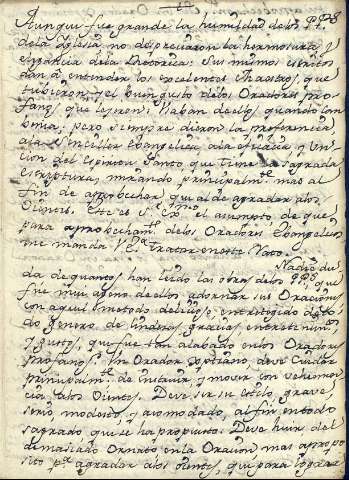 Aunqui fue grande la humildad de los P.P.
de la Yglesia no despreciaron la hermosura, y
elegancia de la Rhetorica: sus mismos escritos
dan à entender los excelentes Maestros, que
tubieron, y el buen gusto de los Oradores pro-
fanos, que leyeron: Usaban de ellos quando con-
benia; pero siempre dieron la preferencia
ala sencillez Evangelica, ala eficacia, y Un-
cion del Espiritu Santo que tiene la sagrada
Escriptura, mirando principalm.te mas al
fin de aprobechar, que al de agradar a los
Oientes. Este es S.r Ex.mo el asumpto, de que
para aprobecham.to de los Oradores Evangelicos
me manda V.E. tratar en este
Nadie du-
da de quantos han leido las obras de los P.P. que
fue muy ageno de ellos adornar sus Oraciones
con aquel methodo delicioso, entretegido de to-
do genero de lindezas, gracias, entretenim.tos
y gustos, que fue tan alabado en los Oradores
profanos. Un Orador Xptiano, deve cuidar
principalm.te de instruir, y mover con vehemen-
cia a los Oientes. Deve ser su estilo, grave
serio, modesto, y acomodado, al fin en todo
sagrado, que se ha propuesto. Deve huir del
demasiado Ornato en la Oracion mas apropo-
sito p.a agradar a los oientes, que para lograr